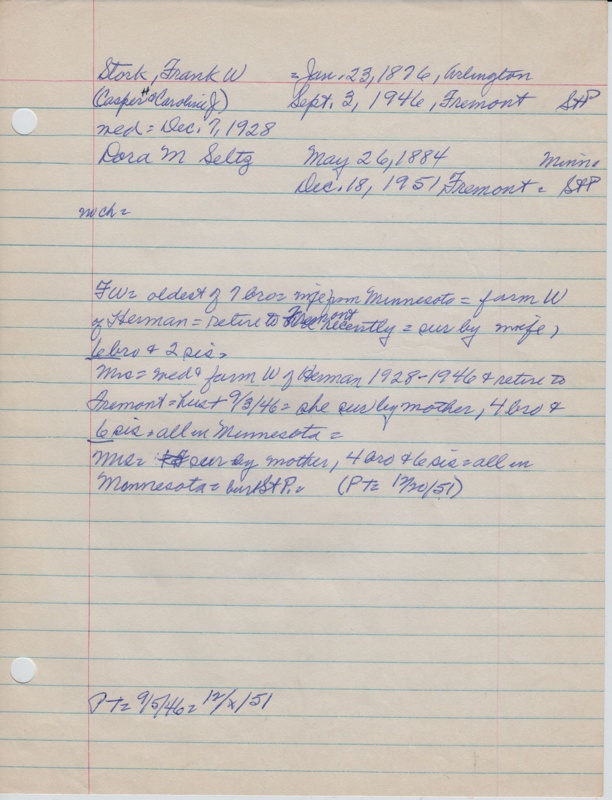 Stork, Frank W = Jan. 23, 1876, Arlington
(Casper H & Caroline J) Sept. 3, 1946, Fremont St P
wed = Dec. 7, 1928
Dora M Seltz May 26, 1884 Minn.
Dec. 18, 1951 Fremont = St P
no ch =
FW = oldest of 7 bro = wife from Minnesota = farm W
of Herman = retire to Fremont recently = sur by wife,
6 bro & 2 sis.
Mrs = wed & farm W of Herman 1928-1946 & retire to
Fremont = hus + 9/3/46 = she sur by mother, 4 bro &
6 sis = all in Minnesota =
Mrs = sur by mother, 4 bro & 6 sis = all in
Minnesota = bur St P. = (PT = 12/20/51)
PT = 9/5/46 = 12/x/51